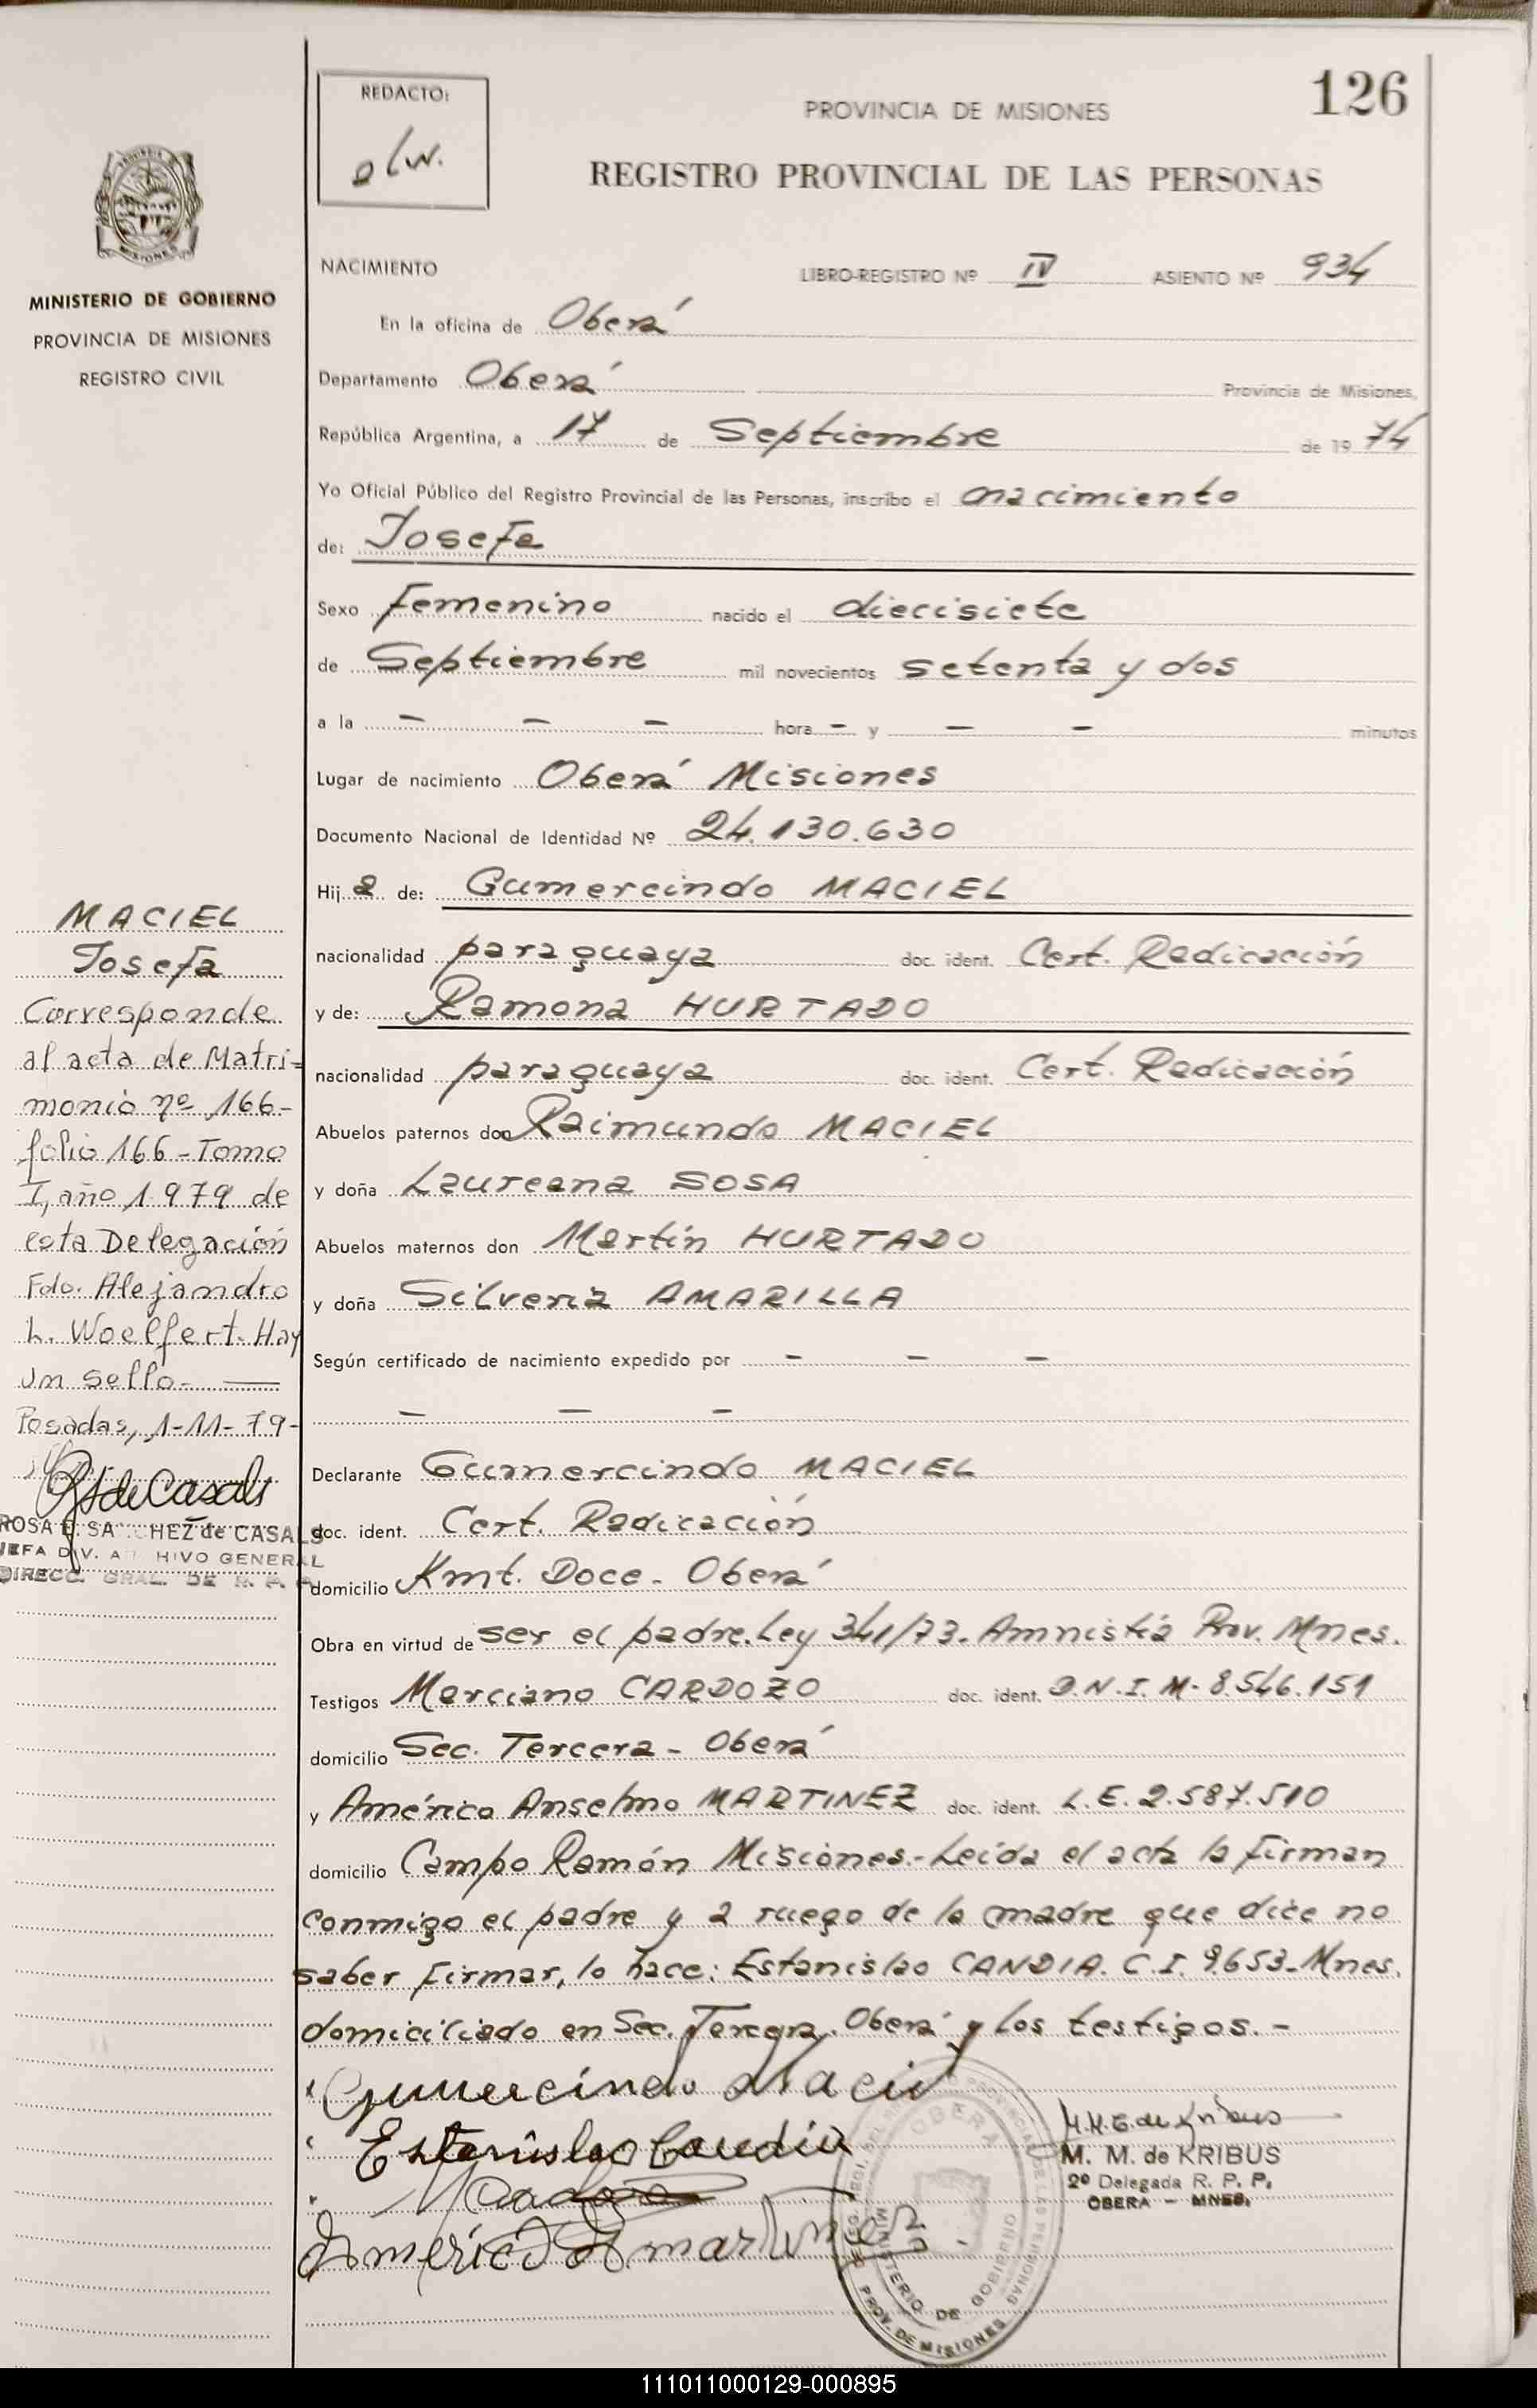 126
REDACTO:
PROVINCIA DE MISIONES
REGISTRO PROVINCIAL DE LAS PERSONAS
MISIONES
MINISTERIO DE GOBIERNO
PROVINCIA DE MISIONES
REGISTRO CIVIL
NACIMIENTO LIBRO-REGISTRO Nº IV ASIENTO Nº 934
En la oficina de Oberá
Departamento Oberá Provincia de Misiones,
República Argentina, a 17 de Septiembre de 1974
Yo Oficial Público del Registro Provincial de las Personas, inscribo el nacimiento
de: Josefa
Sexo Femenino nacido el diecisiete
de Septiembre mil novecientos setenta y dos
a la - - - hora - y - - minutos
Lugar de nacimiento Oberá Misiones
Documento Nacional de Identidad Nº 24.130.630
Hija de: Gumercindo MACIEL
nacionalidad paraguaya doc. ident. Cert. Radicación
y de: Ramona HURTADO
nacionalidad paraguaya doc. ident. Cert. Radicación
Abuelos paternos don Raimundo MACIEL
y doña Laureana SOSA
Abuelos maternos don Martín HURTADO
y doña Silveria AMARILLA
Según certificado de nacimiento expedido por - - -
- - -
Declarante Gumercindo MACIEL
doc. ident. Cert. Radicación
domicilio Kmt. Doce - Oberá
Obra en virtud de ser el padre. Ley 341/73. Amnistía Prov. Mnes.
Testigos Marciano CARDOZO doc. ident. D.N.I. M- 8.546.151
domicilio Sec. Tercera - Oberá
y Américo Anselmo MARTINEZ doc. ident. L.E. 2.587.510
domicilio Campo Ramón Misiones.- Leída el acta la firman
conmigo el padre y a ruego de la madre que dice no
saber firmar, lo hace: Estanislao CANDIA. C.I. 9.653-Mnes.
domiciliado en Sec. Tercera. Oberá y los testigos. -
MACIEL
Josefa
Corresponde
al acta de Matri-
monio nº 166-
folio 166 - Tomo
I, año 1979 de
esta Delegación
Fdo. Alejandro
L. Woelfert. Hay
un sello-
Posadas, 1-11-79-
ROSA SANCHEZ de CASALS
JEFA DIV. ARCHIVO GENERAL
DIRECC. GRAL. DE R.
Gumercindo Maciel
Estanislao Candia
Américo A Martinez
M. M. de KRIBUS
2º Delegada R. P. P.
OBERA - MNES.
OBERA
MINISTERIO DE GOBIERNO
PROV. DE MISIONES
111011000129-000895